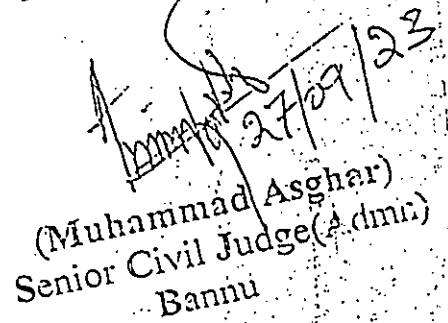 27/09/23
(Muhammad Asghar)
Senior Civil Judge(Admn)
Bannu